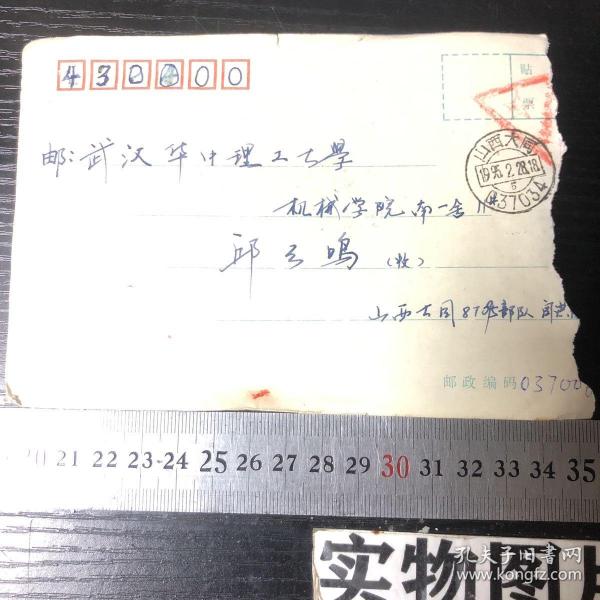 430000
贴
票
山西大同
1995.2.28.18
037034
邮:武汉华中理工大學
机械学院南一舍
邱云鸣(收)
山西大同87部队
邮政编码03700
20 21 22 23 24 25 26 27 28 29 30 31 32 33 34 35
实物图片
孔夫子旧书网
www.kongfz.com